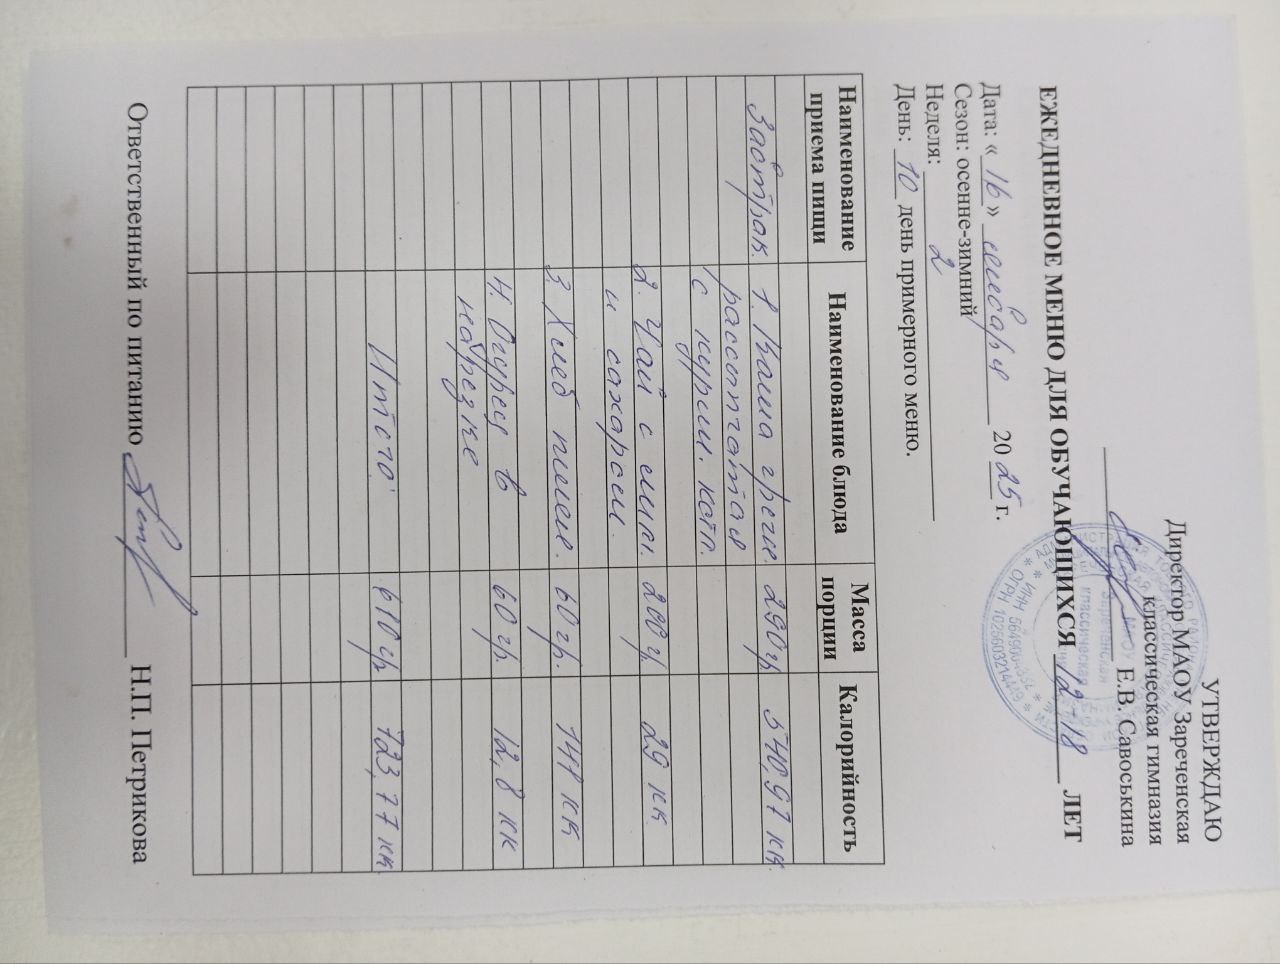 УТВЕРЖДАЮ
Директор МАОУ Зареченская
классическая гимназия
Е.В. Савоськина
ЕЖЕДНЕВНОЕ МЕНЮ ДЛЯ ОБУЧАЮЩИХСЯ 12-18 ЛЕТ
Дата: «16» 2025 г.
Сезон: осенне-зимний
Неделя: 2
День: 10 день примерного меню.
Наименование приема пищи Наименование блюда Масса порции Калорийность
Завтрак. 1. Каша гречн. 290 гр 540,97 кк.
рассыпчатая
с курин. котл.
2. Чай с лим. 200 гр. 29 кк.
и сахаром.
3. Хлеб пшен. 60 гр. 141 кк
4. Огурец в 60 гр. 12,8 кк
нарезке
Итого: 610 гр 723,77 кк.
Ответственный по питанию Н.П. Петрикова